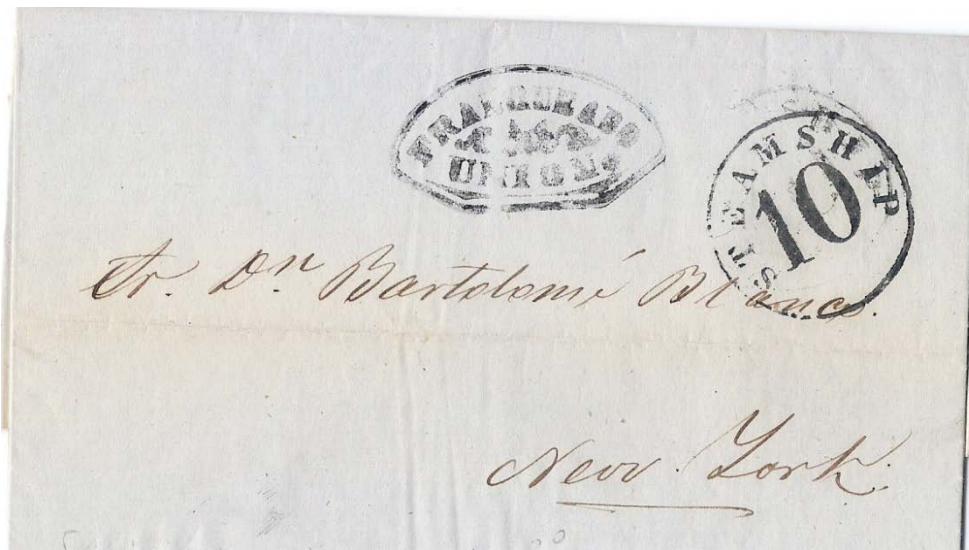 FRANQUEADO
UNION
STEAMSHIP
10
Sr. Dn Bartolomé Blanco.
New York.